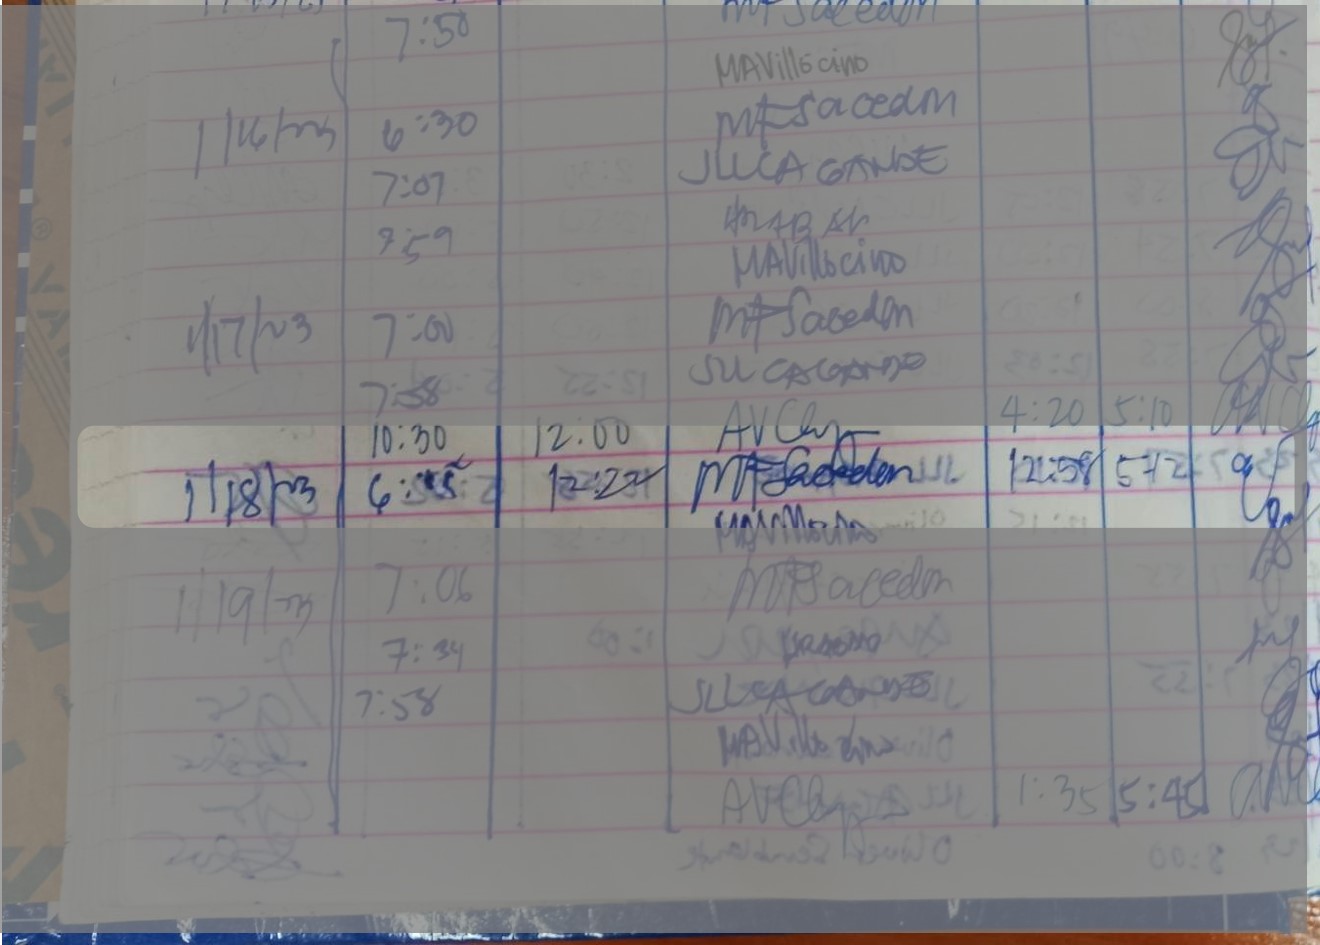 7:50 MF Sacedon
MAVillocino
1/16/23 6:30 MFSacedon
7:07 JLUCAGANDE
7:59
MAVillocino
1/17/23 7:00 MFSacedon
7:58 JLUCAGANDE
10:30 12:00 AVClay 4:20 5:10
1/18/23 6:45 12:22 MFSacedon 12:58 5:12
MAVillocino
1/19/23 7:06 MFSacedon
7:34
7:58 JLUCAGANDE
MAVillocino
AVClay 1:35 5:45